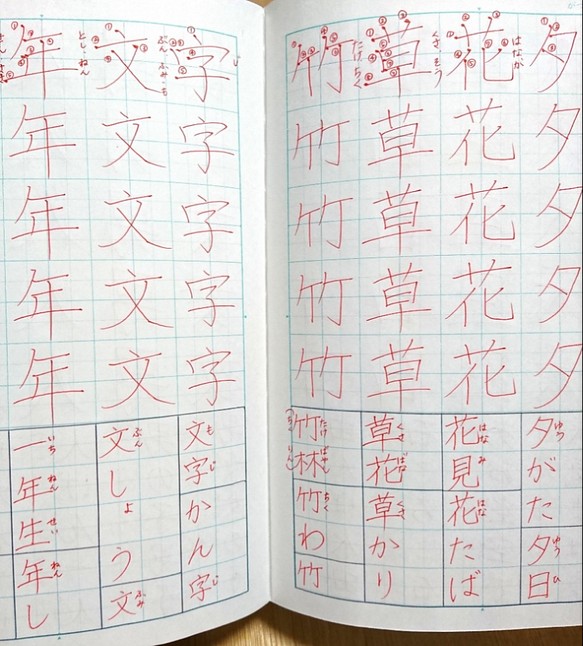 夕夕夕夕夕
夕がた夕日
ゆう ゆう ひ
はな か
花花花花花
花見花たば
はな み はな
くさ そう
草草草草草
草花草かり
くさ ばな くさ
たけ ちく
竹竹竹竹竹
竹林竹わ竹
たけ ばやし ちく
じ
字字字字字
文字かん字
も じ じ
ぶん ふみ・も
文文文文文
文しょう文
ぶん ふみ
とし・ねん
年年年年年
一年生年し
いち ねん せい ねん